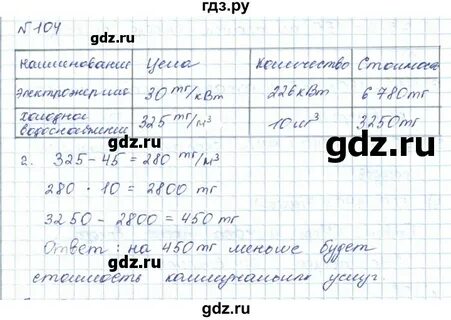 гдз.ру
gdz.ru
№104
Наименование Цена Количество Стоимость
электроэнергия 30 тг/кВт 226 кВт 6 780 тг
Холодное
водоснабжение 325 тг/м³ 10 м³ 3250 тг
2. 325 - 45 = 280 тг/м³
280 · 10 = 2800 тг
3250 - 2800 = 450 тг
Ответ: на 450 тг меньше будет
стоимость коммунальных услуг.